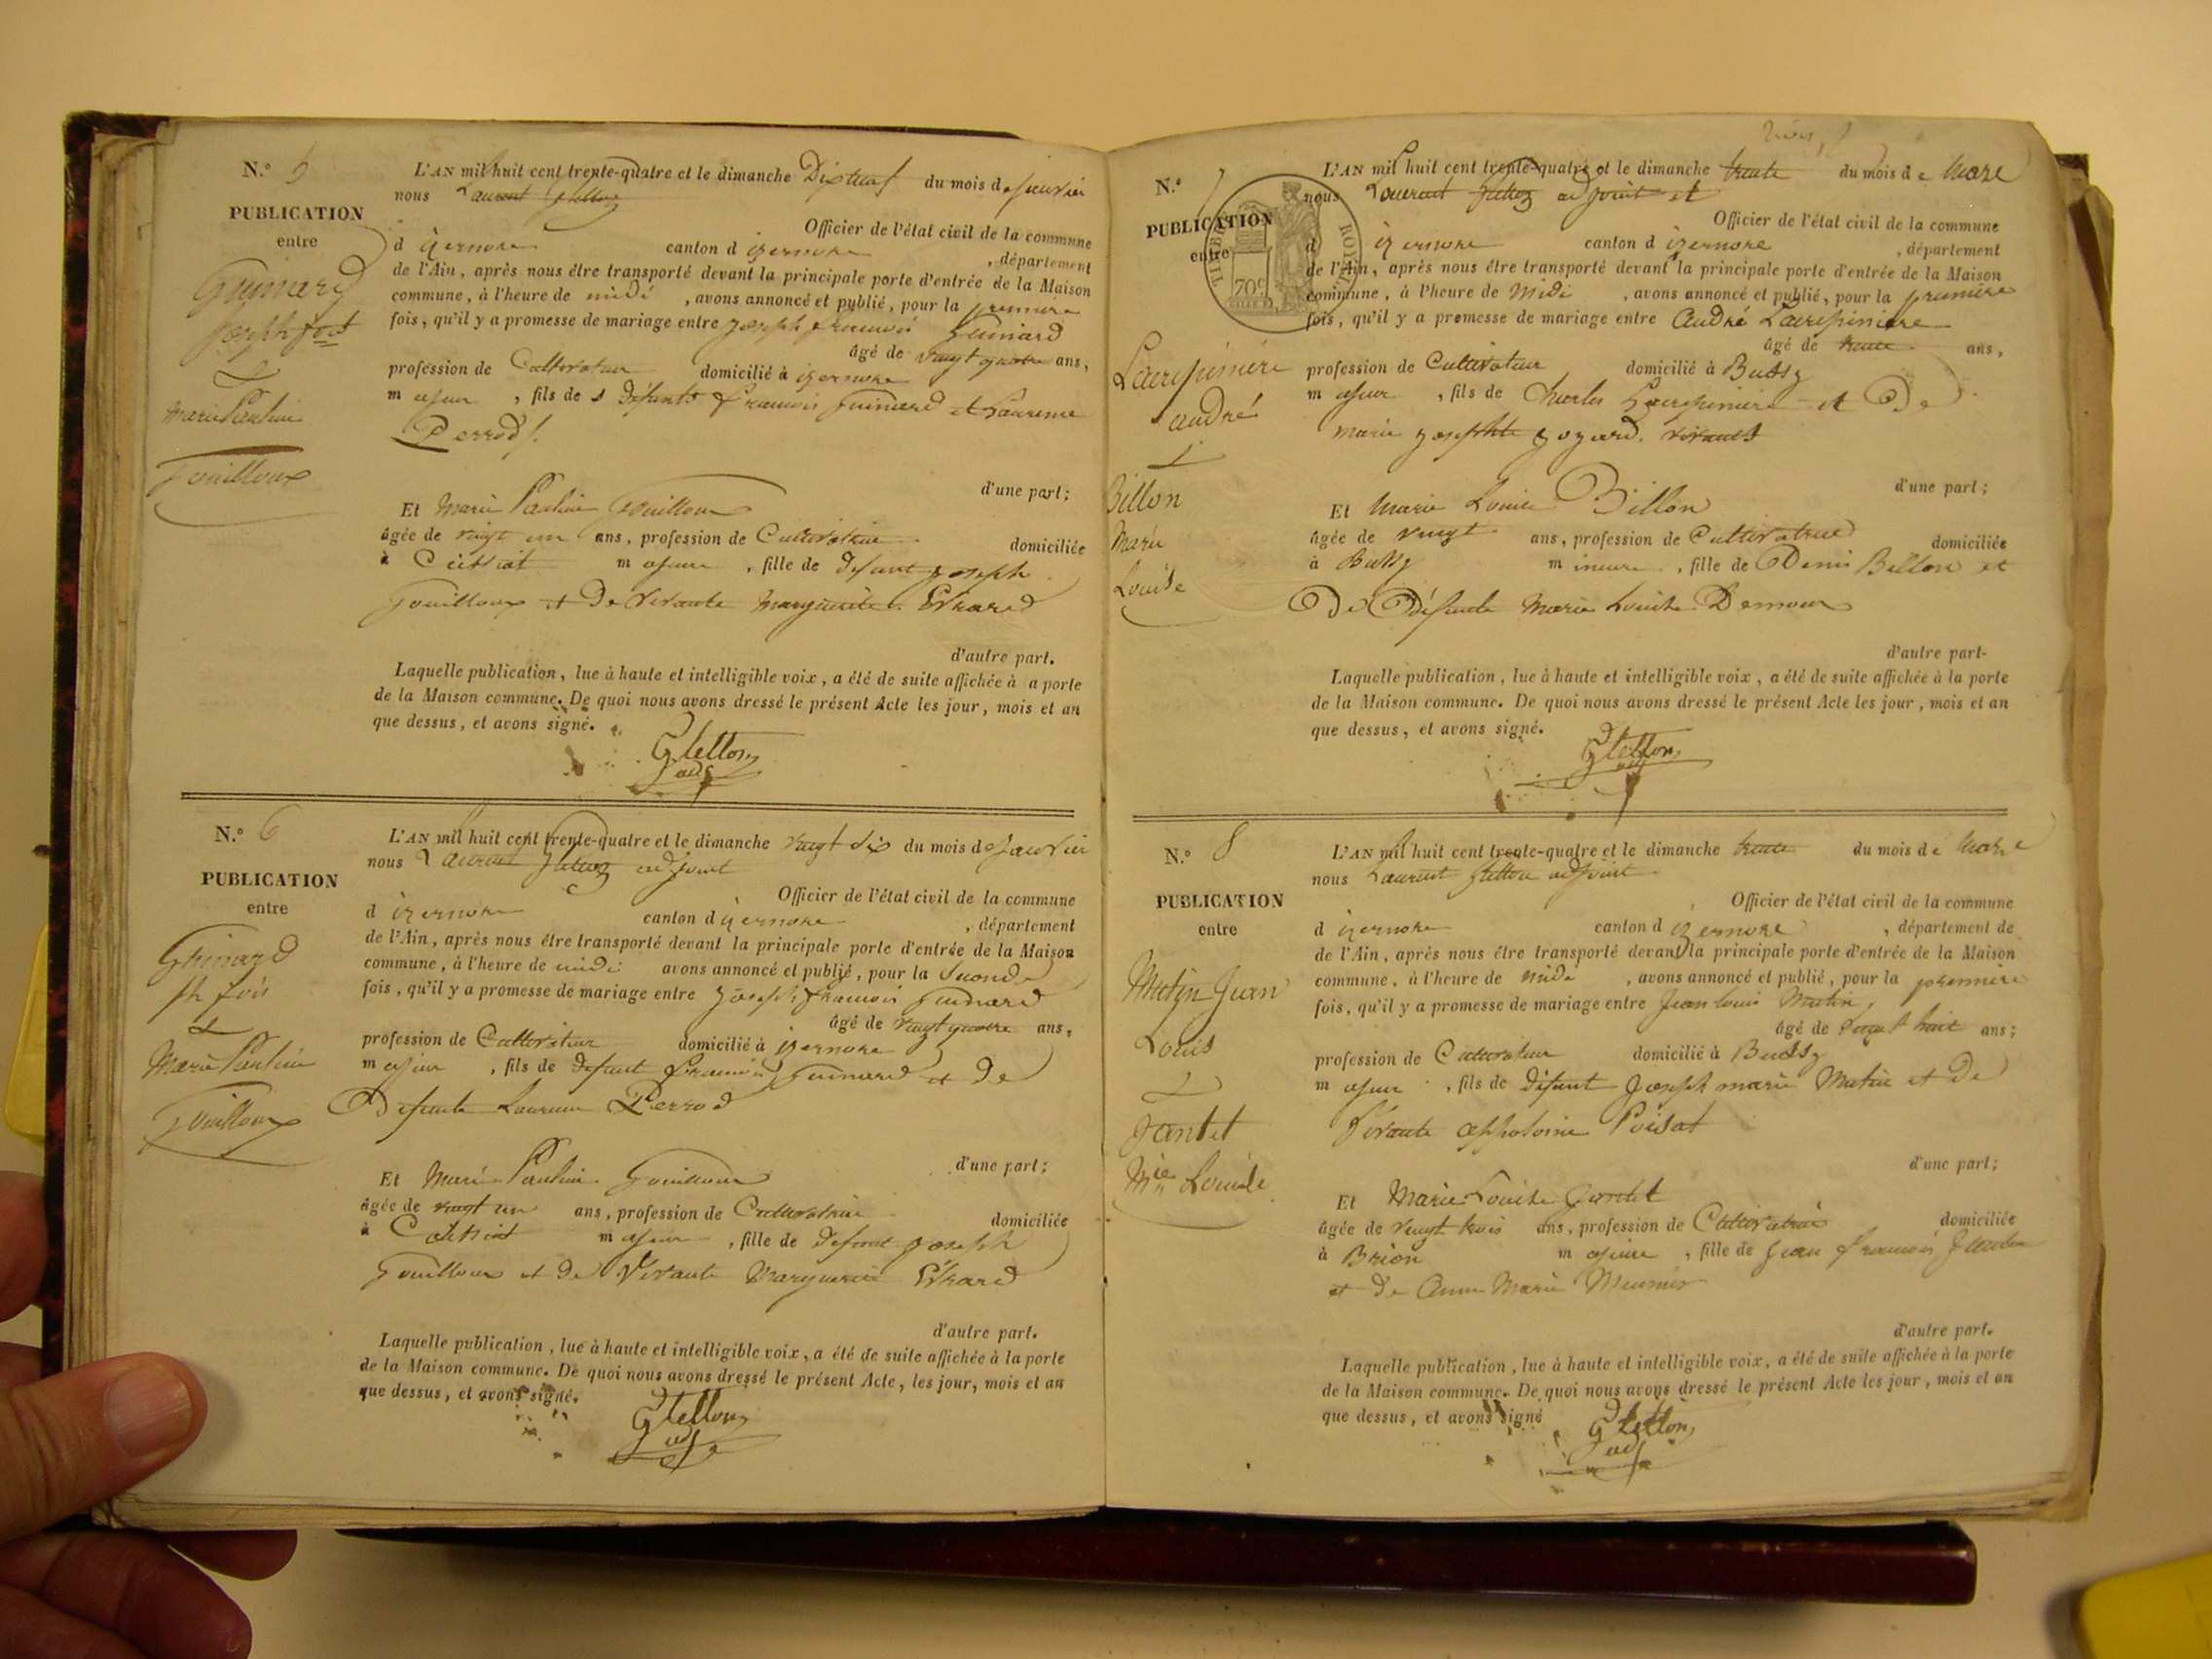 N.° 5
PUBLICATION
entre
Guinard
Joseph fois
&
Marie Pauline
Gouilloux
L'AN mil huit cent trente-quatre et le dimanche Dix neuf du mois de janvier
nous Laurent
Officier de l'état civil de la commune
d izernore canton d izernore , département
de l'Ain, après nous être transporté devant la principale porte d'entrée de la Maison
commune, à l'heure de midi , avons annoncé et publié, pour la premiere
fois, qu'il y a promesse de mariage entre joseph françois Guinard
âgé de vingt quatre ans,
profession de Cultivateur domicilié à izernore
majeur , fils de s défunts françois Guinard et Laurence
Perrod
d'une part;
Et Marie Pauline Gouilloux
âgée de vingt un ans, profession de Cultivatrice domiciliée
à Ceissiat majeure , fille de defunt joseph
Gouilloux et De Vivante Marguerite Evrard
d'autre part.
Laquelle publication, lue à haute et intelligible voix, a été de suite affichée à a porte
de la Maison commune. De quoi nous avons dressé le présent Acte les jour, mois et an
que dessus, et avons signé.
adj
N.° 6
PUBLICATION
entre
Guinard
ph fois
&
Marie Pauline
Gouilloux
L'AN mil huit cent trente-quatre et le dimanche vingt six du mois de janvier
nous Laurent adjoint
Officier de l'état civil de la commune
d izernore canton d izernore , département
de l'Ain, après nous être transporté devant la principale porte d'entrée de la Maison
commune, à l'heure de midi avons annoncé et publié, pour la seconde
fois, qu'il y a promesse de mariage entre joseph françois Guinard
âgé de vingt quatre ans,
profession de Cultivateur domicilié à izernore
majeur , fils de defunt françois Guinard et de
Defunte Laurence Perrod
d'une part;
Et Marie Pauline Gouilloux
âgée de vingt un ans, profession de Cultivatrice domiciliée
à Ceissiat majeure , fille de defunt joseph
Gouilloux et De Vivante Marguerite Evrard
d'autre part.
Laquelle publication, lue à haute et intelligible voix, a été de suite affichée à la porte
de la Maison commune. De quoi nous avons dressé le présent Acte, les jour, mois et an
que dessus, et avons signé.
adj
N.° 7
PUBLICATION
entre
TIMBRE ROYAL
70c
Lacrepiniere
andré
&
Billon
Marie
Louise
L'AN mil huit cent trente-quatre et le dimanche trente du mois de Mars
nous Laurent adjoint et
Officier de l'état civil de la commune
d izernore canton d izernore , département
de l'Ain, après nous être transporté devant la principale porte d'entrée de la Maison
commune, à l'heure de Midi , avons annoncé et publié, pour la premiere
fois, qu'il y a promesse de mariage entre André Lacrepiniere
âgé de trente ans,
profession de Cultivateur domicilié à Bussy
majeur , fils de Charles Lacrepiniere et De
marie josephte goyard. vivants
d'une part;
Et Marie Louise Billon
âgée de vingt ans, profession de Cultivatrice domiciliée
à Bussy mineure , fille de Denis Billon et
De Défunte Marie Louise
d'autre part-
Laquelle publication, lue à haute et intelligible voix, a été de suite affichée à la porte
de la Maison commune. De quoi nous avons dressé le présent Acte les jour, mois et an
que dessus, et avons signé.
adj
N.° 8
PUBLICATION
entre
Matin Jean
Louis
&
Jantet
Mie Louise
L'AN mil huit cent trente-quatre et le dimanche trente du mois de Mars
nous Laurent adjoint
Officier de l'état civil de la commune
d izernore canton d izernore , département de
de l'Ain, après nous être transporté devant la principale porte d'entrée de la Maison
commune, à l'heure de midi , avons annoncé et publié, pour la premiere
fois, qu'il y a promesse de mariage entre Jean louis Matin,
âgé de vingt huit ans;
profession de Cultivateur domicilié à Bussy
majeur , fils de défunt Joseph marie Matin et de
Vivante appoloine Poisat
d'une part;
Et Marie Louise Jantet
âgée de vingt trois ans, profession de Cultivatrice domiciliée
à Brion majeure , fille de Jean françois Jantet
et de Anne Marie Meunier
d'autre part.
Laquelle publication, lue à haute et intelligible voix, a été de suite affichée à la porte
de la Maison commune. De quoi nous avons dressé le présent Acte les jour, mois et an
que dessus, et avons signé
adj